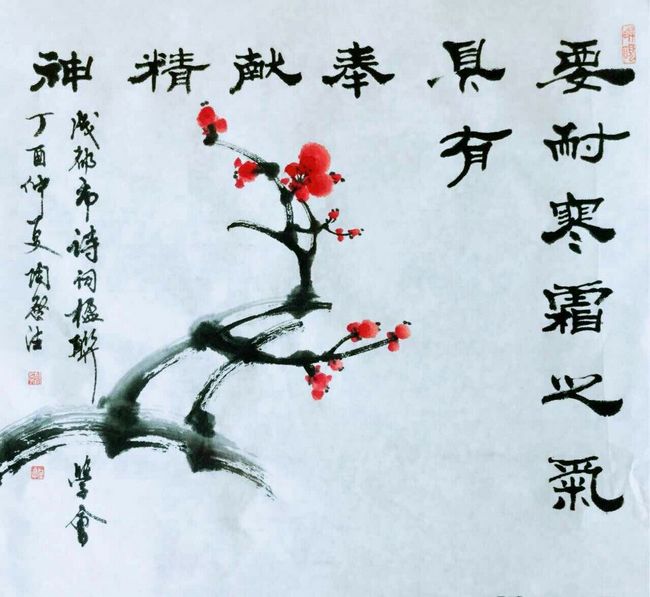 要耐寒霜之氣
具有
奉献精神
成都市诗词楹聯學會
丁酉仲夏陶